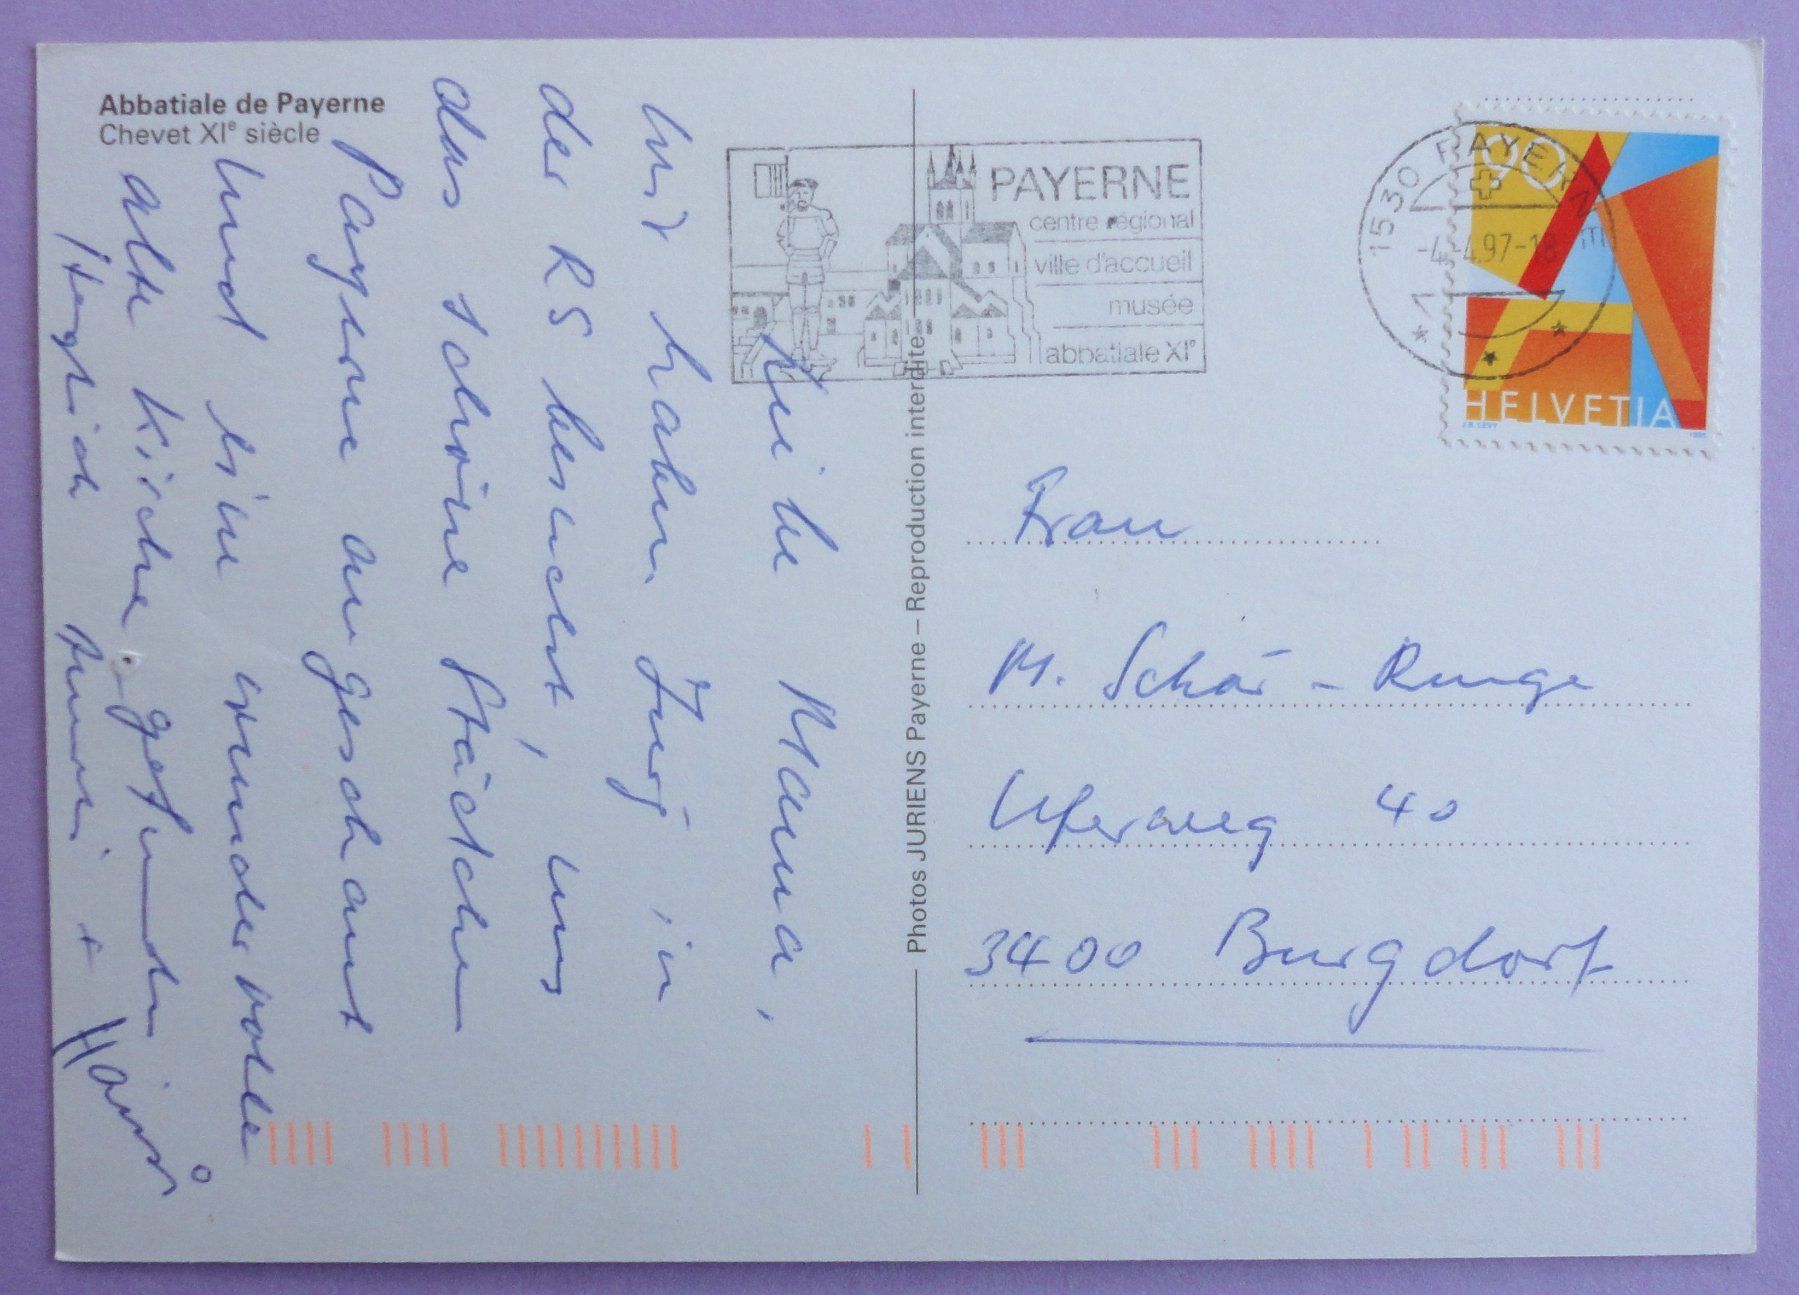 Abbatiale de Payerne
Chevet XIe siècle
Meine Mama,
wir haben Jürg in
der RS besucht, uns
das schöne Städtchen
Payerne angeschaut
und eine wundervolle
alte Kirche gefunden
Herzlich +
Photos JURIENS Payerne – Reproduction interdite
PAYERNE
centre régional
ville d'accueil
musée
abbatiale XIe
1530 PAYERNE
-4.-4.97-18
90
HELVETIA
J.B. LEVY
1995
Frau
M. Schär - Runge
Uferweg 40
3400 Burgdorf